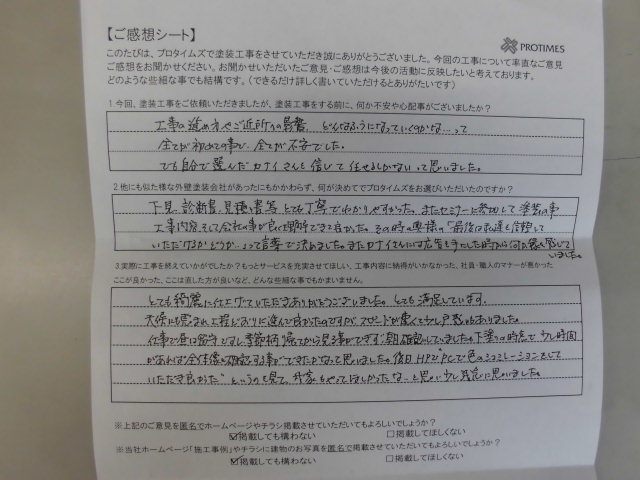 【ご感想シート】
PROTIMES
このたびは、プロタイムズで塗装工事をさせていただき誠にありがとうございました。今回の工事について率直なご意見
ご感想をお聞かせください。お聞かせいただいたご意見・ご感想は今後の活動に反映したいと考えております。
どのような些細な事でも結構です。(できるだけ詳しく書いていただけるとありがたいです)
1.今回、塗装工事をご依頼いただきましたが、塗装工事をする前に、何か不安や心配事がございましたか?
工事の進め方やご近所への影響、どんなふうになっていくのかな…って
全てが初めての事で、全てが不安でした。
でも自分で選んだカナイさんを信じて任せるしかないって思いました。
2.他にも似た様な外壁塗装会社があったにもかかわらず、何が決めてでプロタイムズをお選びいただいたのですか?
下見、診断書、見積書等とても丁寧でわかりやすかった。またセミナーに参加して塗装の事
工事内容、そして会社の事が良く理解できて良かった。その時の奥様の「最後は私達を信頼して
いただけるかどうか」って言葉で決めました。またカナイさんには広告を手にした時から何か縁を感じて
いました。
3.実際に工事を終えていかがでしたか?もっとサービスを充実させてほしい、工事内容に納得がいかなかった、社員・職人のマナーが悪かった
ここが良かった、ここは直した方が良いなど、どんな些細な事でもかまいません。
とても綺麗に仕上げていただきありがとうございました。とても満足しています。
天候にも恵まれ、工程どおりに進んで良かったのですが、スピードが速くて少し戸惑いもありました。
仕事で昼は留守ですし、季節柄、帰ってから見る事ができず、朝確認していました。下塗りの時点で少し時間
があれば全体像を確認する事ができたかなって思いました。後日HPで"PCで色のシュミレーションをして
いただき良かった"というのを見て、我家もやってほしかったな…と思い少し残念に思いました。
※上記のご意見を匿名でホームページやチラシ掲載させていただいてもよろしいでしょうか?
☑掲載しても構わない □掲載してほしくない
※当社ホームページ「施工事例」やチラシに建物のお写真を匿名で掲載させていただいてもよろしいでしょうか?
☑掲載しても構わない □掲載してほしくない